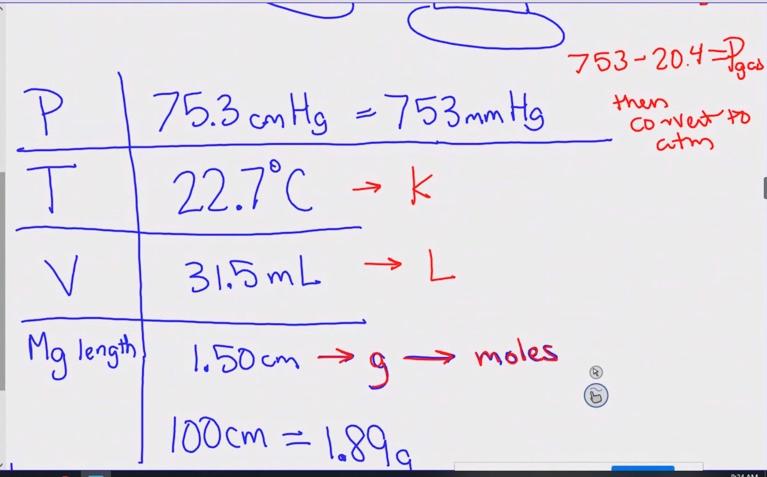 753-20.4=Pgas
then
convert to
atm
P 75.3 cmHg = 753mmHg
T 22.7°C → K
V 31.5mL → L
Mg length 1.50cm → g → moles
100cm = 1.89g